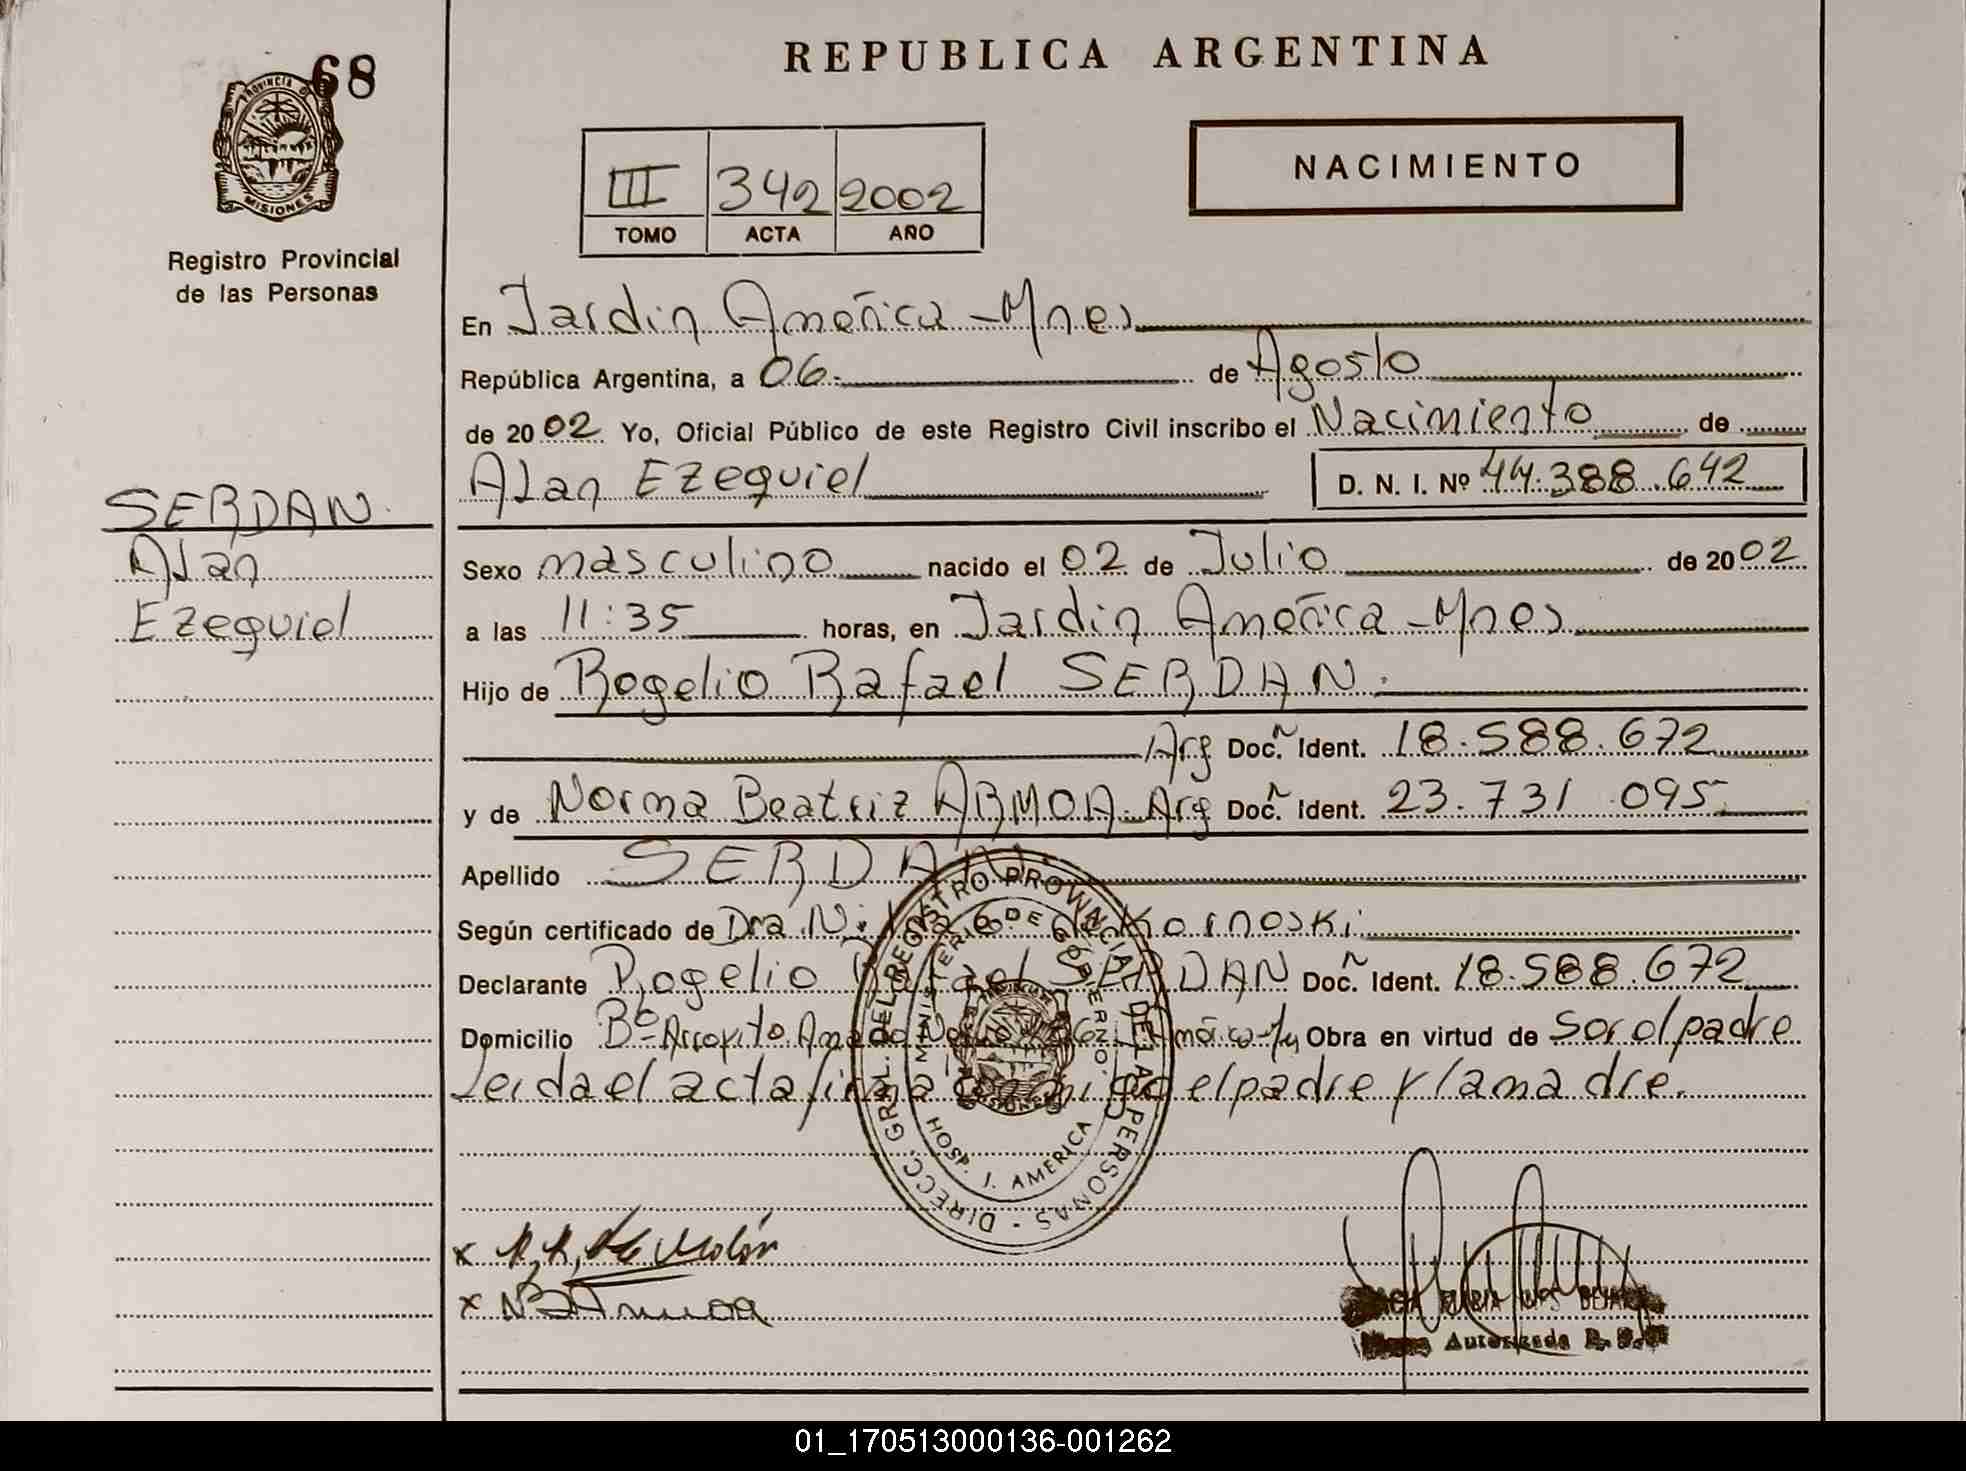 68
PROVINCIA D
MISIONES
Registro Provincial
de las Personas
REPUBLICA ARGENTINA
III 342 2002
TOMO ACTA AÑO
NACIMIENTO
En Jardin América - Mnes
República Argentina, a 06.- de Agosto
de 2002 Yo, Oficial Público de este Registro Civil inscribo el Nacimiento de
Alan Ezequiel D. N. I. Nº 44.388.642
SERDAN
Alan
Ezequiel
Sexo masculino nacido el 02 de Julio de 2002
a las 11:35 horas, en Jardin América - Mnes
Hijo de Rogelio Rafael SERDAN.
Arg Doc. Ident. 18.588.672
y de Norma Beatriz ARMOA - Arg Doc. Ident. 23.731.095
Apellido SERDAN.
Según certificado de Dra. Kornoski
Declarante Rogelio SERDAN Doc. Ident. 18.588.672
Domicilio Bº Arroyito Obra en virtud de Ser el padre
Leida el acta firma el padre y la madre.
DIRECC. GRAL. DEL REGISTRO PROVINCIAL DE LAS PERSONAS
MINISTERIO DE GOBIERNO
HOSP. J. AMERICA
x
x N B Armoa
Autorizada
01_170513000136-001262